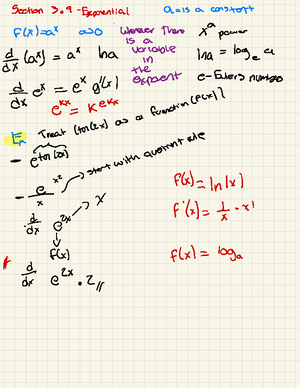 Section 3.9 - Exponential
a = is a constant
f(x)=a^x a>0
Whenever there is a variable in the exponent
x^a power
d/dx (a^x) = a^x ln a
ln a = log_e a
d/dx e^x = e^x g'(x)
e - Eulers number
e^kx = k e^kx
Ex Treat (tan(2x) as a function (f(x))
- e^tan(2x)
- e^x² / x → start with quotient rule
d/dx e^2x → x
f(x)
d/dx e^2x · 2
f(x) = ln|x|
f'(x) = 1/x · x'
f(x) = log_a